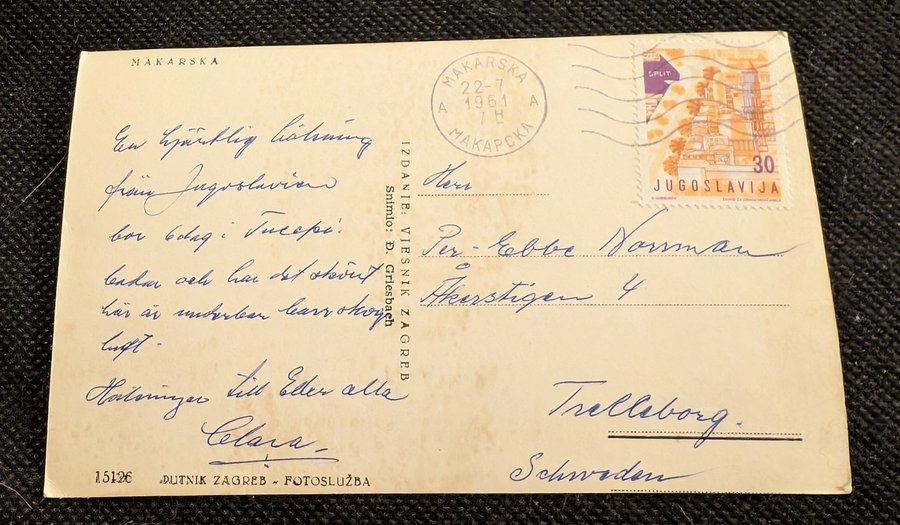 MAKARSKA
En hjärtlig hälsning
från Jugoslavien
bor 6 dag i Tucepi.
badar och har det skönt
här är underbar barrskog
luft.
Hälsningar till Eder alla
Clara
15126 PUTNIK ZAGREB - FOTOSLUŽBA
IZDANJE: VJESNIK ZAGREB
Snimio: Đ. Griesbach
MAKARSKA
22-7
1961
7H
A A
МАКАРСКА
SPLIT
30
JUGOSLAVIJA
Herr
Per-Ebbe Norrman
Åkerstigen 4
Trelleborg.
Schweden